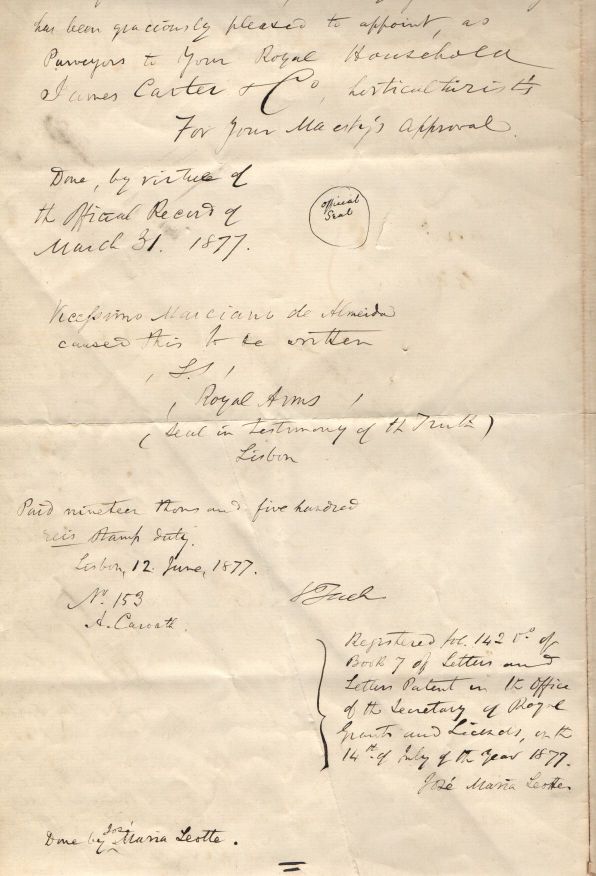 has been graciously pleased to appoint, as
Purveyors to Your Royal Household
James Carter & Co, horticulturists
For Your Majesty's Approval.
Done, by virtue of
th Official Record of
March 31. 1877.
Official
Seal
Marciano de Almeida
caused this to be written
Royal Arms
(Seal in testimony of th Truth)
Lisbon
Paid nineteen thousand five hundred
reis stamp duty.
Lisbon, 12. June, 1877.
No. 153
A.
Registered fol. 142 Vo of
Book 7 of Letters and
Letters Patent in th Office
of th Secretary of Royal
Grants and Licenses, on th
14th of July of th Year 1877.
José Maria Leotte.
José
Done by Maria Leotte.